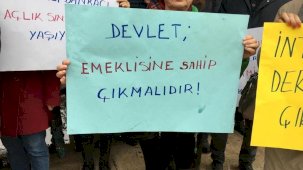 AÇLIK SIN
YAŞIY
DEVLET;
EMEKLİSİNE SAHİP
ÇIKMALIDIR!
İN
DEK
Ç